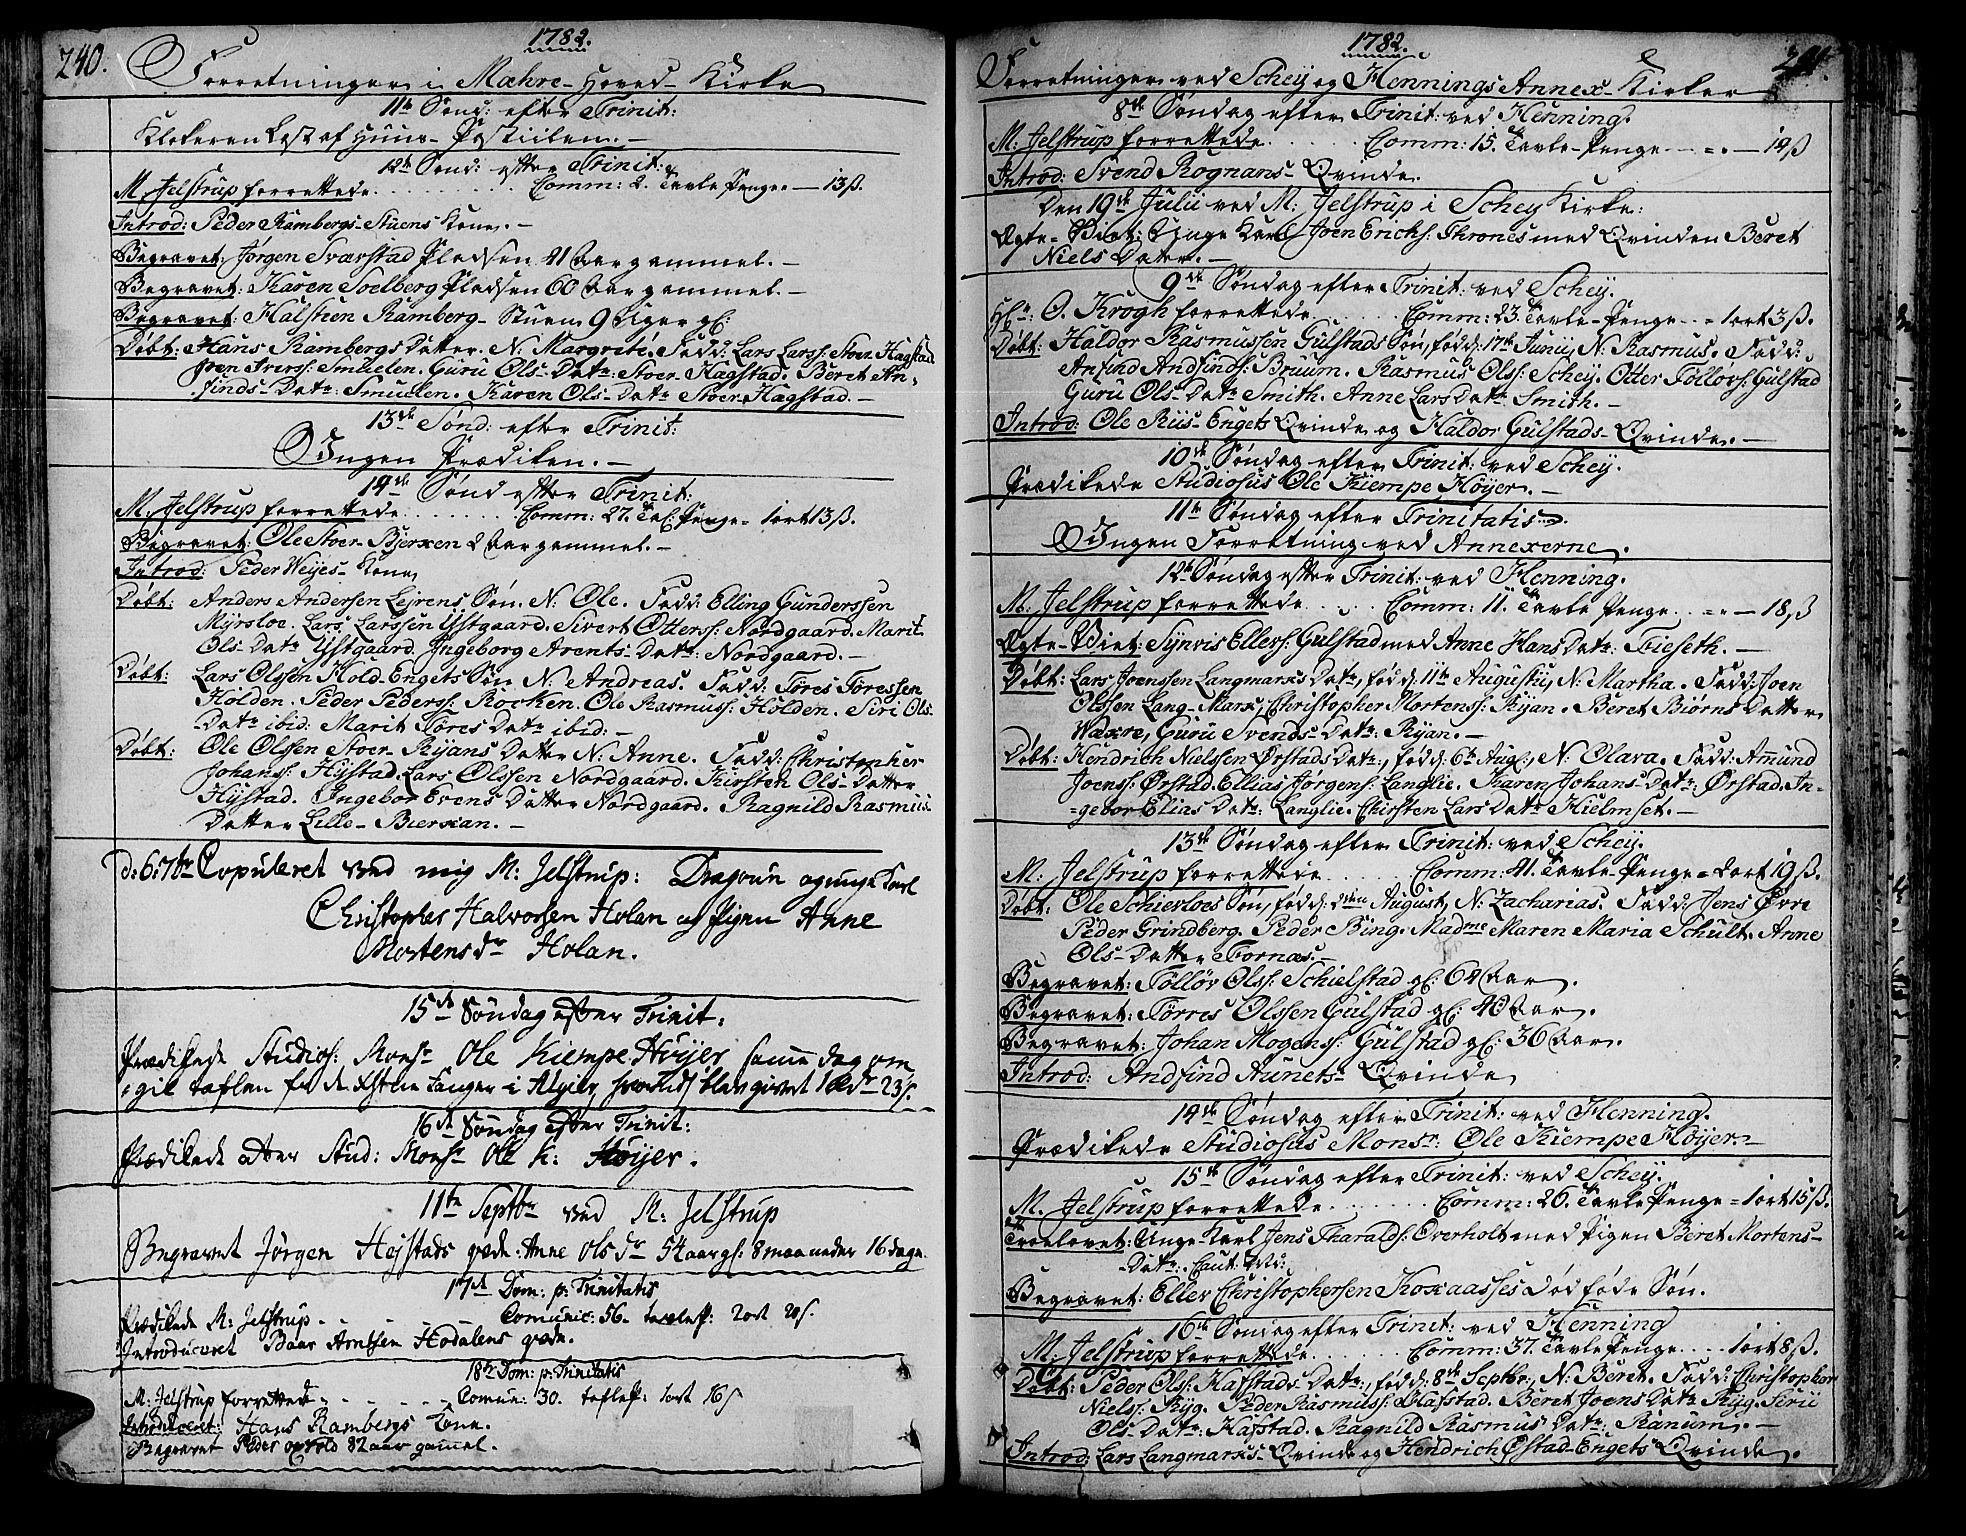 240.
1782.
Forretninger i Mæhre-Hoved-Kirke
11te Sønd: efter Trinit:
Klokeren Læst af Huus-Postillen.-
12te Sønd: efter Trinit:
M. Jelstrup forrettede ........ Comm: 2. Tavle Penge - - 13ß.
Introd: Peder Rambergs-Stuens Kone.-
Begravet: Jørgen Sværstad Pladsen 41 Aar gammel.-
Begravet: Karen Soelberg Pladsen 60 Aar gammel.-
Begravet: Halsten Ramberg-Stuen 9 Uger gl:
Døbt: Hans Rambergs Datter. N: Margrite. Fadd: Lars Larss: Stoer-Hagstad
Smuelen. Guru Ols-Datr: Stoer-Hagstad. Beret An-
finds-Datr Smuelen. Karen Ols-Datr Stoer-Hagstad.-
13de Sønd: efter Trinit:
Ingen Prædiken.-
14de Sønd efter Trinit:
M. Jelstrup forrettede ....... Comm: 27. Tafl: Penge = 1 ort 13ß.
Begravet: Ole Stoer-Bjerxen 2 Aar gammel.-
Introd: Peder Weyes-Kone
Døbt: Anders Andersen Lejrens Søn. N: Ole. Fadd: Elling Gunderssen
Myrsloe. Lars Larssen Ystgaard. Sivert Otterss: Nordgaard. Marit
Ols-Datr Ystgaard. Ingeborg Arents-Datr: Nordgaard.-
Døbt: Lars Olssen Hold-Engets Søn N: Andreas. Fadd: Føres Føressen
Holden. Peder Pederss: Rocken. Ole Rasmuss: Holden. Siri Ols-
Datr ibid: Marit Føres Datr ibid:-
Døbt: Ole Olssen Stoer-Ryans Datter N: Anne. Fadd: Christopher
Johanss: Hystad. Lars Olssen Nordgaard. Kirsten Ols-Datter
Hystad. Ingebor Evens Datter Nordgaard. Ragnild Rasmus
Datter Lille-Bierxan.-
d: 6: 7br Copuleret ved mig M: Jelstrup: Dragoun og unge Karl
Christopher Halvorsen Holan og Pigen Anne
Mortensdr Holan.
15de Søndag efter Trinit:
Prædikede Studios: Monsr Ole Kiempe Høyer samme dag om
gik taflen for de Xstne Fanger i Algier, hvortil blev givet 1 Rdr 23ß.
16de Søndag efter Trinit:
Prædikede atter Stud: Monsr Ole K: Høyer.
11te Septbr ved M: Jelstrup
Begravet Jørgen Hejstads qvde: Anne Ols dr 54 aar gl: 8 maaneder 16 dage.
17de Dom: p: Trinitatis
Prædikede M: Jelstrup - - - Comunic: 56. tavlep: 2 ort 20ß.
Introduceret Baar Arntsen Hodalens qvde.
18de Dom: p: Trinitatis
M: Jelstrup forrettede - - - Comun: 30. taflep: 1 ort 16ß
Introduceret: Hans Rambergs Kone.
Begravet Peder opvold 82 aar gamel.
1782.
241.
Forretninger ved Schey og Hennings Annex-Kirker
8de Søndag efter Trinit: ved Henning.
M: Jelstrup forrettede ...... Comm: 15. Tavle-Penge - - = - 14ß
Introd: Svend Rognans-Qvinde.
Den 19de Julii ved M: Jelstrup i Schey Kirke:
Ægte-Viet: Unge Karl Joen Ericks: Thrones med Qvinden Beret
Niels Datter.-
9de Søndag efter Trinit: ved Schey.
Hr: O. Krogh forrettede ...... Comm: 23. Tavle-Penge - - 1 ort 3ß.
Døbt: Haldor Rasmussen Gulstads Søn, fødd: 17de Junii, N: Rasmus. Fadd:
Anfind Andfinds: Bruum. Rasmus Ols: Schey. Otter Tølløvs: Gulstad
Guru Ols-Datr Smith. Anne Lars Datr Smith.-
Introd: Ole Riis-Engets Qvinde og Haldor Gulstads-Qvinde.-
10de Søndag efter Trinit: ved Schey.
Prædikede Studiosus Ole Kiempe Høyer.-
11te Søndag efter Trinitatis.
Ingen Forretning ved Annexerne.
12te Søndag efter Trinit: ved Henning.
M. Jelstrup forrettede ..... Comm: 11. Tavle Penge - - = - 18ß
Ægte-Viet: Synvis Ellers: Gulstad med Anne Hans Datr: Trieseth.-
Døbt: Lars Joenssen Langmarxs Datr, fødd: 11te Augustii, N: Martha. Fadd: Joen
Olssen Lang-Marx, Christopher Mortenss: Ryan. Beret Biørns Datter
Waxre, Guru Svends-Datr: Ryan.-
Døbt: Hendrich Nielssen Ørstads Datr, fødd: 6te Aug:, N: Olava. Fadd: Amund
Joenss: Ørstad. Ellias Jørgens: Langlie. Karen Johans-Datr: Ørstad. In=
=gebor Elias Datr: Langlie. Chirsten Lars Datr Hielmset.-
13de Søndag efter Trinit: ved Schey.
M: Jelstrup forrettede ..... Comm: 41. Tavle-Penge = 2 ort 19ß.
Døbt: Ole Schierloes Søn, fødd: den August, N: Zacharias. Fadd: Jens Øvre
Peder Grindberg. Peder Bing. Madme Maren Maria Schult. Anne
Ols-Datter Fornæs.-
Begravet: Tølløv Ols: Schielstad gl: 62 Aar.
Begravet: Tørris Olssen Gulstad gl: 40 Aar.
Begravet: Johan Mogens: Gulstad gl: 36 Aar.
Introd: Andfind Aunets-Qvinde
14de Søndag efter Trinit: ved Henning.
Prædikede Studiosus Monsr: Ole Kiempe Høyer-
15de Søndag efter Trinit: ved Schey.
M. Jelstrup forrettede ...... Comm: 26. Tavle Penge = 1 ort 15ß.
Troelovet: Unge-Karl Jens Tharalds: Overholt med Pigen Beret Mortens-
Datr:. Caut:
Begravet: Eller Christophersen Koxaasses Dødføde Søn.
16de Søndag efter Trinit: ved Henning
M: Jelstrup forrettede ..... Comm: 37. Tavle Penge - - - 1 ort 8ß.
Døbt: Peder Ols: Hafstads Datr:, fødd: 8de Septbr, N: Beret. Fadd: Christopher
Niels: Ryg. Peder Rasmus: Hafstad. Beret Joens Datr Ryg. Siru
Ols-Datr: Hafstad. Ragnild Rasmus Datr: Ranum.-
Introd: Lars Langmarxs-Qvinde og Hendrich Østad-Engets Qvinde.